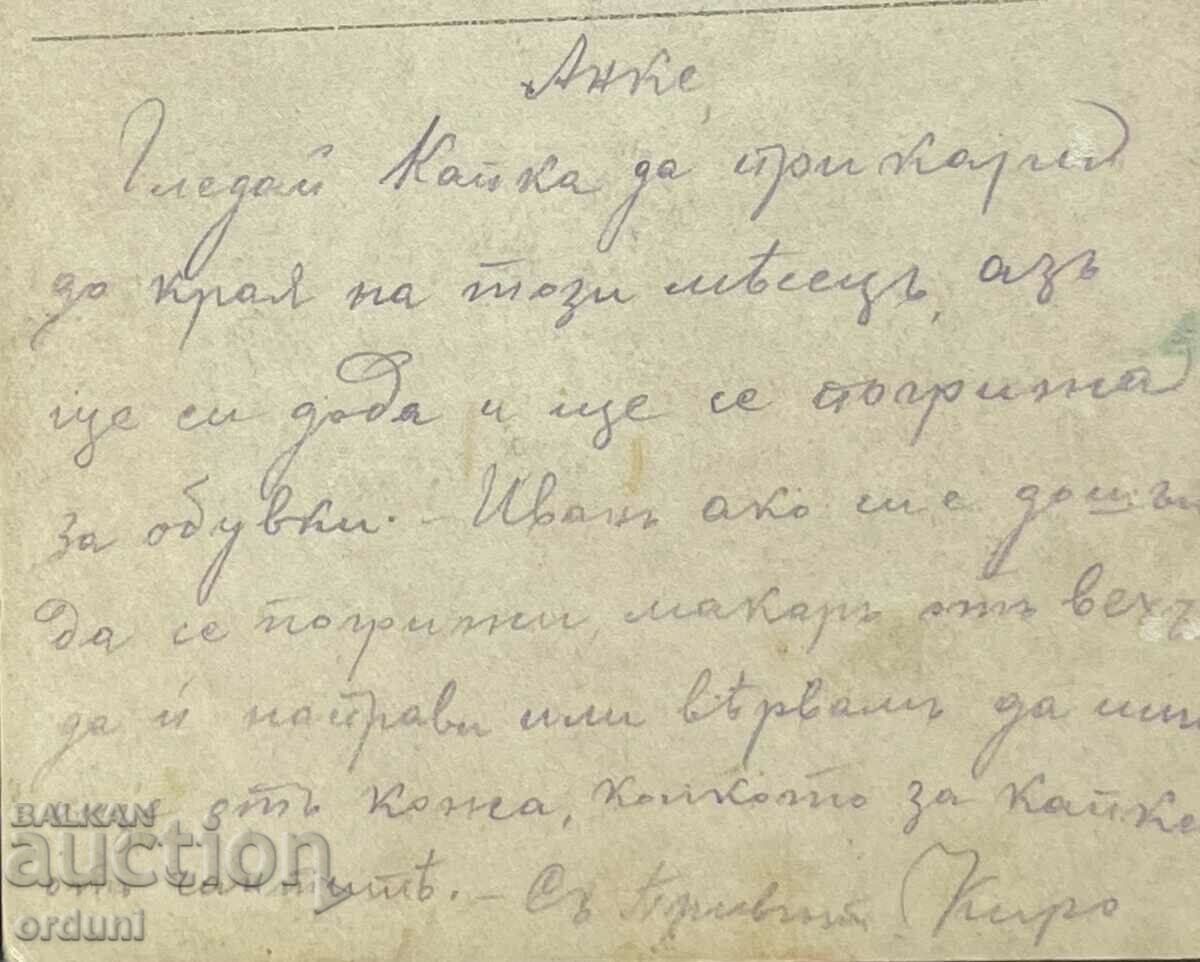 Анке,
Гледай Капка да прикара
до края на този мѣсецъ, азъ
ще си дода и ще се погрижа
за обувки. – Иванъ ако ше дошъл
да се погрижи, макаръ отъ вехт
да ѝ направи или вѣрвамъ да им
отъ кожа, колкото за Капке
отъ. – Съ привѣт Киро
BALKAN
auction
orduni